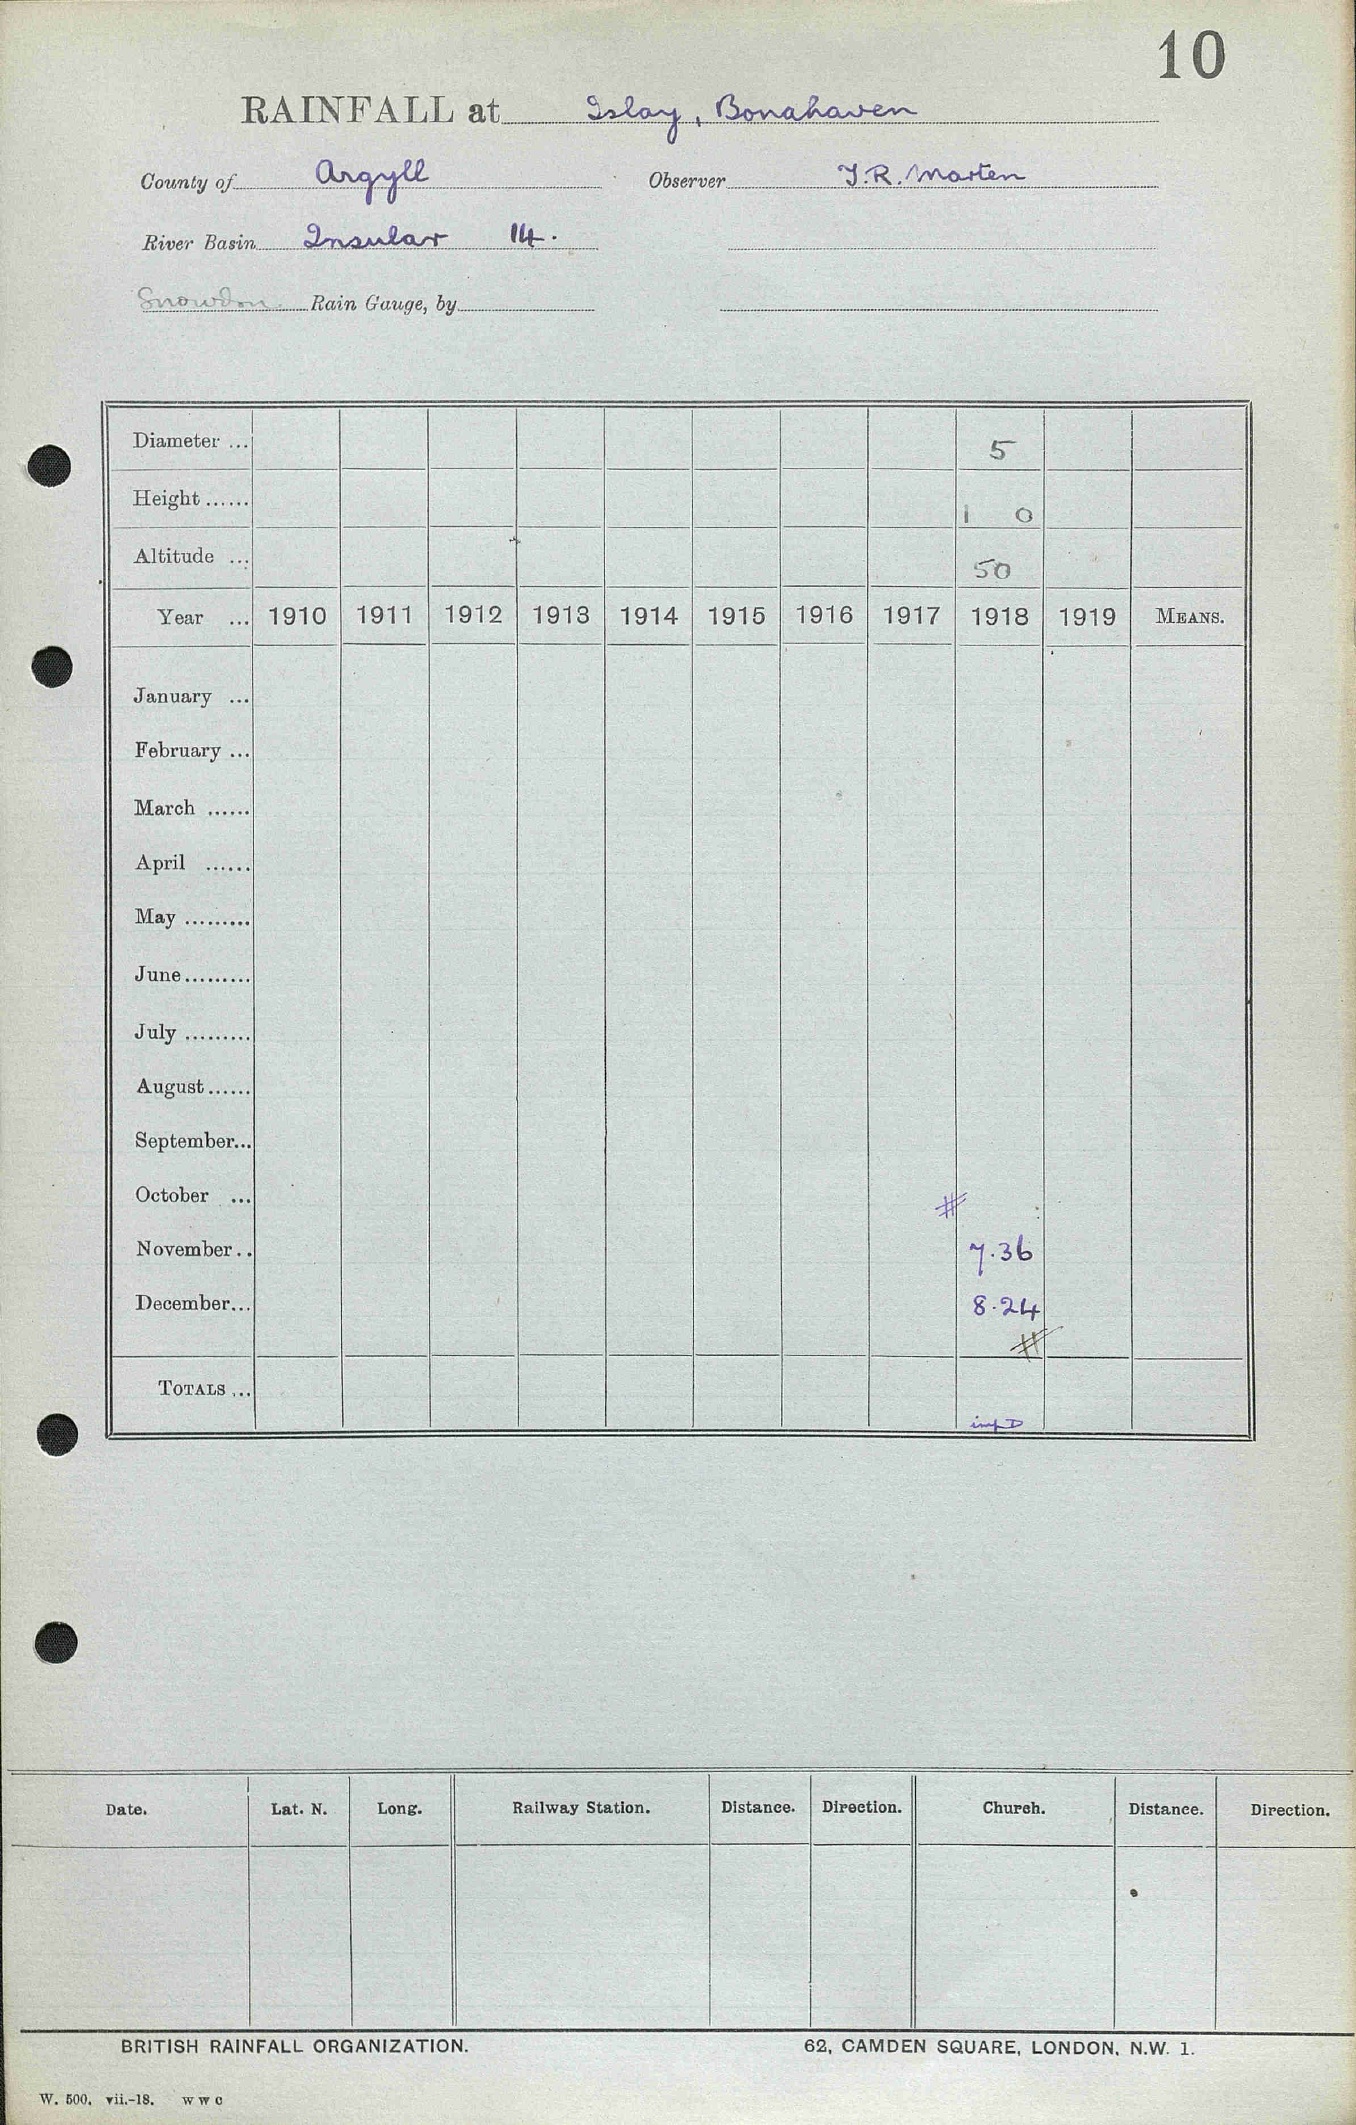 10
RAINFALL at Islay, Bonahaven
County of Argyll Observer J.R. Marten
River Basin Insular 14.
Snowdon Rain Gauge, by
Diameter ... 5
Height ...... 1 0
Altitude ... 50
Year ... 1910 1911 1912 1913 1914 1915 1916 1917 1918 1919 MEANS.
January ...
February ...
March ......
April ......
May .........
June .........
July .........
August ......
September...
October ... #
November.. 7.36
December... 8.24
#
TOTALS ...
Date. Lat. N. Long. Railway Station. Distance. Direction. Church. Distance. Direction.
BRITISH RAINFALL ORGANIZATION. 62, CAMDEN SQUARE, LONDON, N.W. 1.
W. 500. vii.-18. W W C